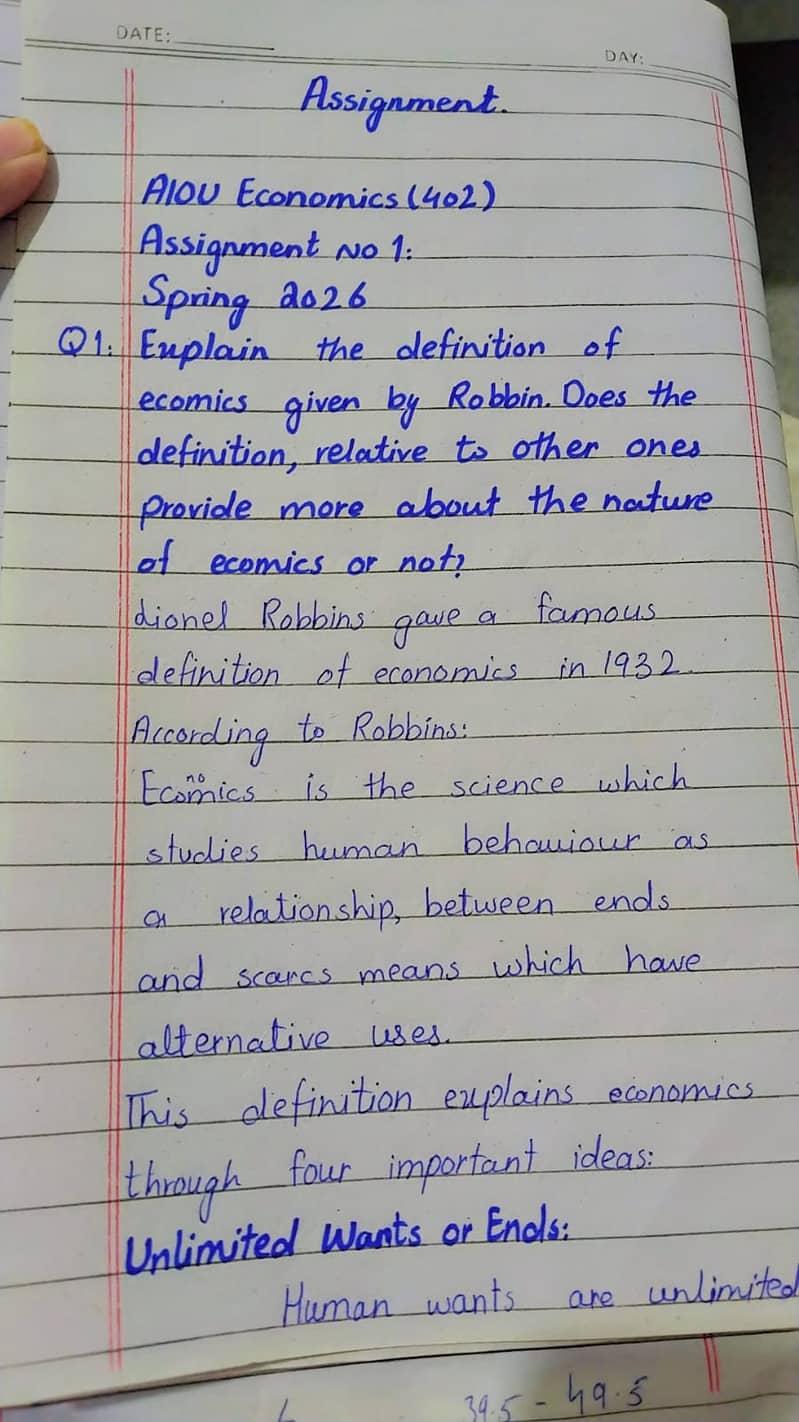 DATE:
DAY:
Assignment.
AIOU Economics (402)
Assignment No 1:
Spring 2026
Q1. Explain the definition of
ecomics given by Robbin. Does the
definition, relative to other ones
provide more about the nature
of ecomics or not?
Lionel Robbins gave a famous
definition of economics in 1932.
According to Robbins:
Economics is the science which
studies human behaviour as
a relationship, between ends
and scarcs means which have
alternative uses.
This definition explains economics
through four important ideas:
Unlimited Wants or Ends:
Human wants are unlimited
39.5 - 49.5